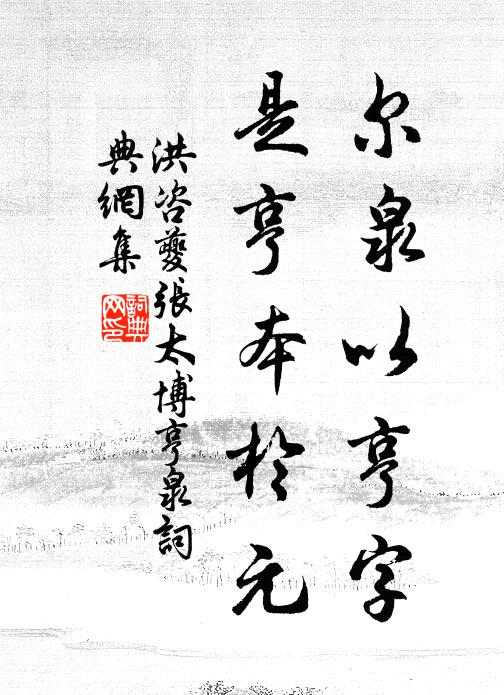 尔泉以亨字
是亨本於元
洪咨夔張太博亨泉詞
典網集
詞典網印